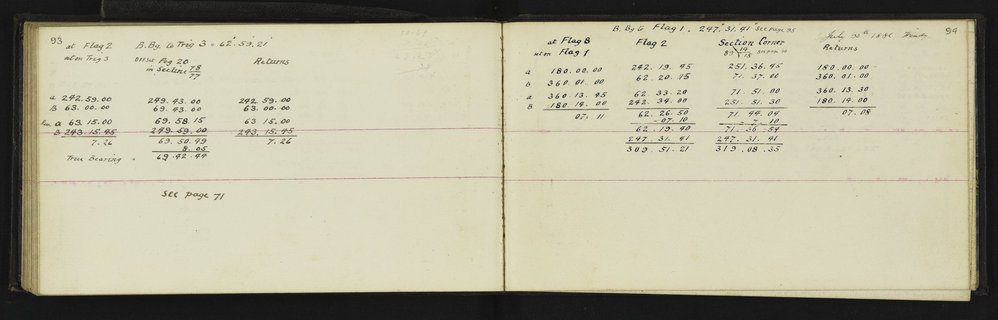 93
at Flag 2    B. Bg. to Trig 3 = 62°.59'.21"
set on Trig 3    Offset Peg 20    Returns
in Section 78/77
A 242.59.00    249.43.00    242.59.00
B 63.00.00    69.43.00    63.00.00
A 63.15.00    69.58.15    63.15.00
B 243.15.45    249.59.00    243.15.45
7.26    69.50.49    7.26
8.05
True Bearing = 69.42.44
See page 71
94
B. Bg to Flag 1 = 247°.31'.41" See page 95
July 30th 1886
at Flag B    Flag 2    Section Corner    Returns
set on Flag 1
A 180.00.00    242.19.45    251.36.45    180.00.00
B 360.01.00    62.20.15    71.37.00    360.01.00
A 360.13.45    62.33.20    71.51.00    360.13.30
B 180.14.00    242.34.00    251.51.30    180.14.00
07.11    62.26.50    71.44.04    07.08
- 07.10    - 7.10
62.19.40    71.36.54
247.31.41    247.31.41
309.51.21    319.08.35